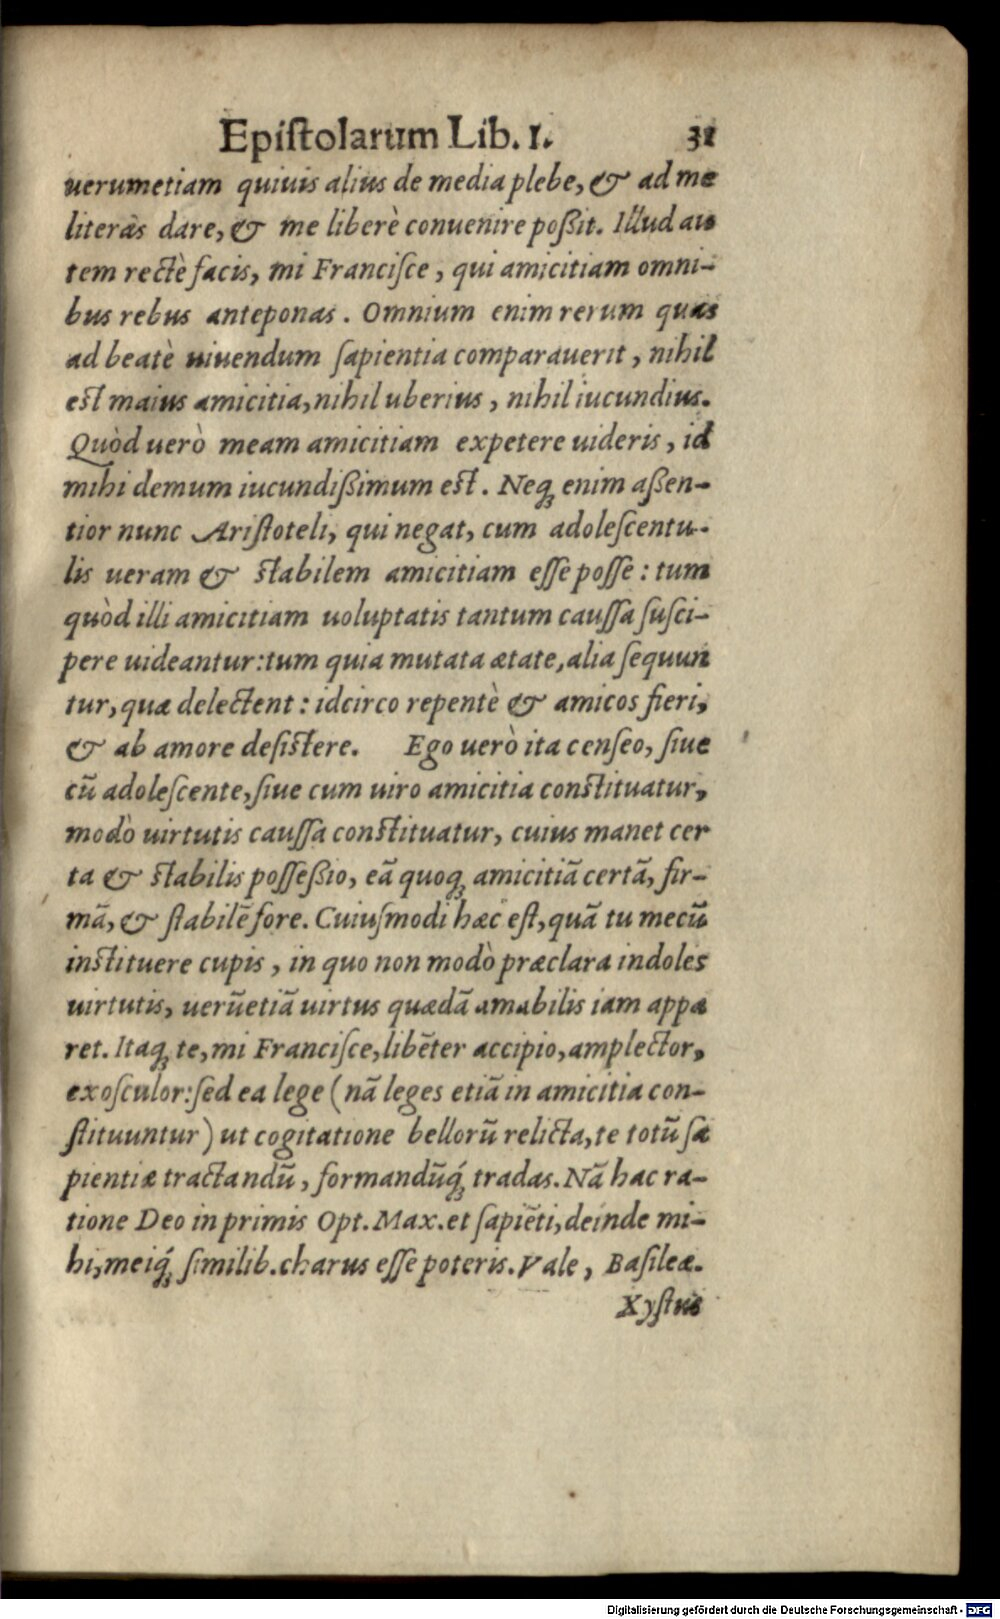 Epiſtolarum Lib. I. 31
uerumetiam quiuis alius de media plebe, & ad me
literas dare, & me liberè conuenire poßit. Illud au
tem rectè facis, mi Franciſce, qui amicitiam omni-
bus rebus anteponas. Omnium enim rerum quas
ad beatè uiuendum ſapientia comparauerit, nihil
est maius amicitia, nihil uberius, nihil iucundius.
Quòd uerò meam amicitiam expetere uideris, id
mihi demum iucundißimum est. Neq; enim aßen-
tior nunc Ariſtoteli, qui negat, cum adoleſcentu-
lis ueram & stabilem amicitiam eſſe poſſe: tum
quòd illi amicitiam uoluptatis tantum cauſſa ſuſci-
pere uideantur: tum quia mutata ætate, alia ſequun
tur, quæ delectent: idcirco repentè & amicos fieri,
& ab amore deſistere. Ego uerò ita cenſeo, ſiue
cū adoleſcente, ſiue cum uiro amicitia constituatur,
modò uirtutis cauſſa constituatur, cuius manet cer
ta & stabilis poſſeßio, eā quoq; amicitiā certā, fir-
mā, & ſtabilē fore. Cuiuſmodi hæc eſt, quā tu mecū
instituere cupis, in quo non modò præclara indoles
uirtutis, uerūetiā uirtus quædā amabilis iam appa
ret. Itaq; te, mi Franciſce, libēter accipio, amplector,
exoſculor: ſed ea lege (nā leges etiā in amicitia con-
ſtituuntur) ut cogitatione bellorū relicta, te totū ſa
pientiæ tractandū, formandūq́; tradas. Nā hac ra-
tione Deo in primis Opt. Max. et ſapiēti, deinde mi-
hi, meiq́; ſimilib. charus eſſe poteris. Vale, Baſileæ.
Xyſtus
Digitalisierung gefördert durch die Deutsche Forschungsgemeinschaft - DFG